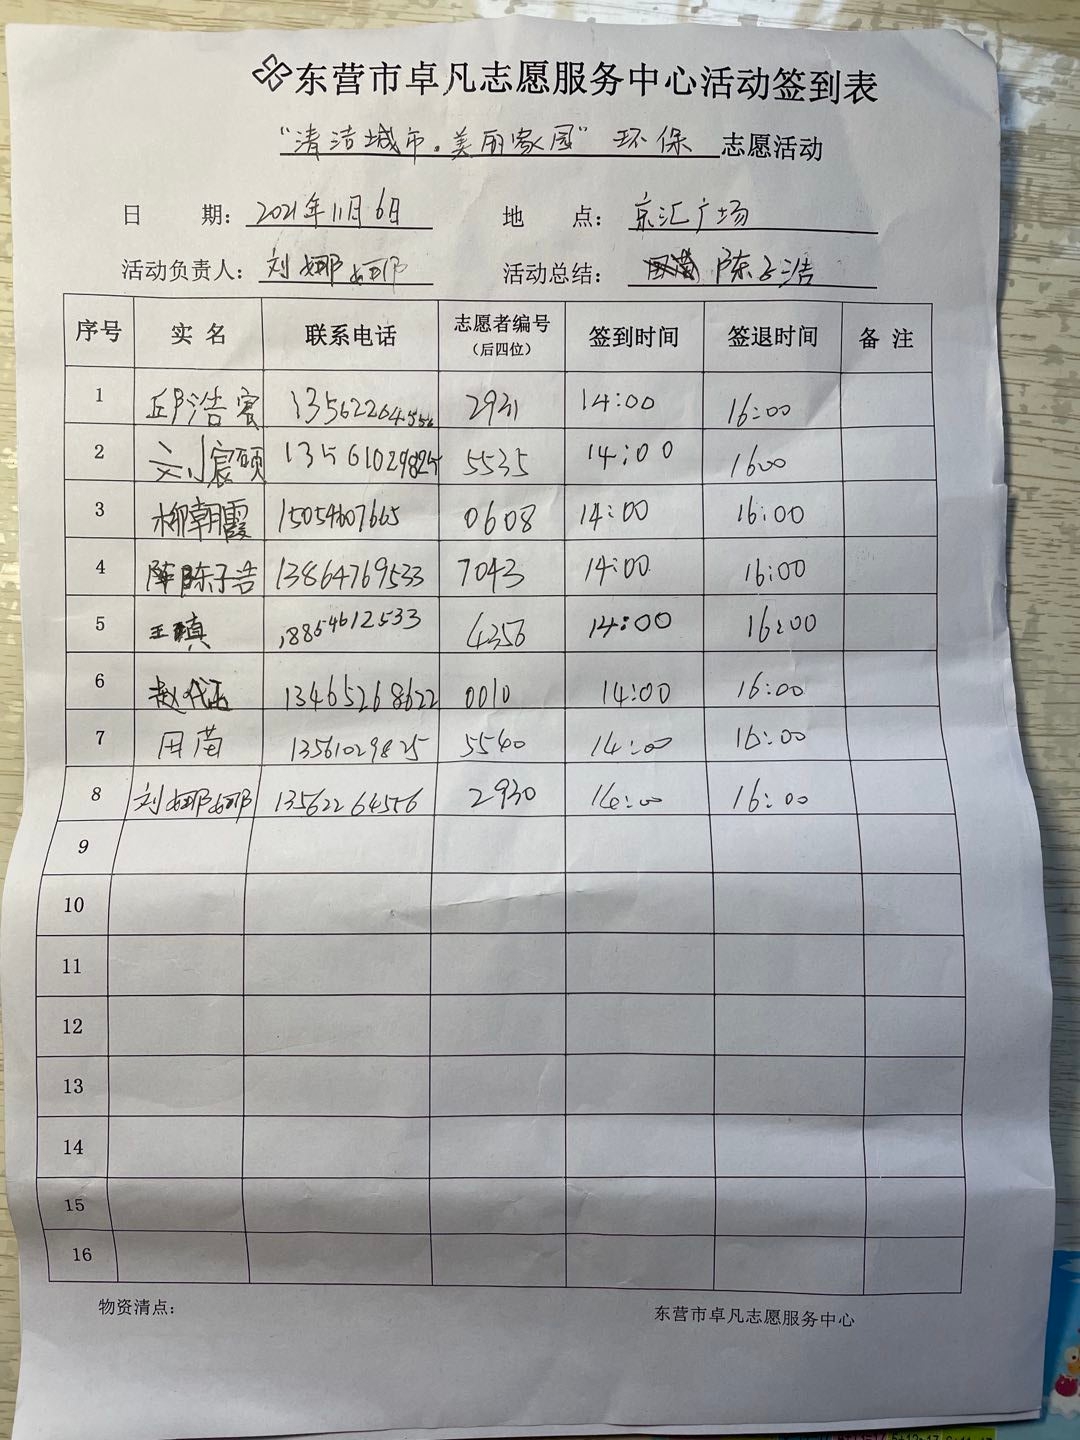 东营市卓凡志愿服务中心活动签到表
“清洁城市。美丽家园”环保 志愿活动
日 期: 2021年11月6日 地 点: 京汇广场
活动负责人: 刘娜娜 活动总结: 陈子浩
序号 实 名 联系电话 志愿者编号 (后四位) 签到时间 签退时间 备 注
1 邱浩宸 13562264556 2931 14:00 16:00
2 刘宸硕 13561029825 5535 14:00 1600
3 柳朝霞 15054607665 0608 14:00 16:00
4 陈子浩 13864769533 7043 14:00 16:00
5 王 18854612533 4356 14:00 16:00
6 赵 13465268622 0010 14:00 16:00
7 田苗 13561029825 5540 14:00 16:00
8 刘娜娜 13562264556 2930 14:00 16:00
9
10
11
12
13
14
15
16
物资清点: 东营市卓凡志愿服务中心